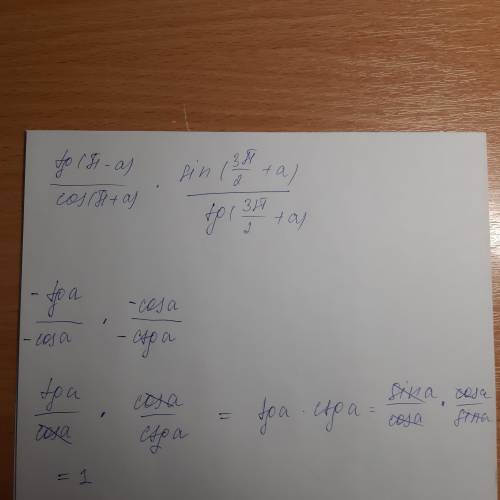 tg(π-a)/cos(π+a) · sin(3π/2 +a)/tg(3π/2 +a)
-tga/-cosa · -cosa/-ctga
tga/cosa · cosa/ctga = tga · ctga = sina/cosa · cosa/sina
= 1